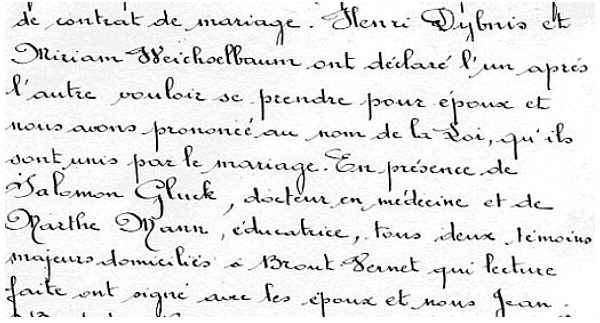 de contrat de mariage. Henri Dybnis et
Miriam Weichselbaum ont déclaré l'un après
l'autre vouloir se prendre pour époux et
nous avons prononcé au nom de la Loi, qu'ils
sont unis par le mariage. En présence de
Salomon Gluck, docteur en médecine et de
Marthe Mann, éducatrice, tous deux témoins
majeurs domiciliés à Brout Vernet qui lecture
faite ont signé avec les époux et nous Jean